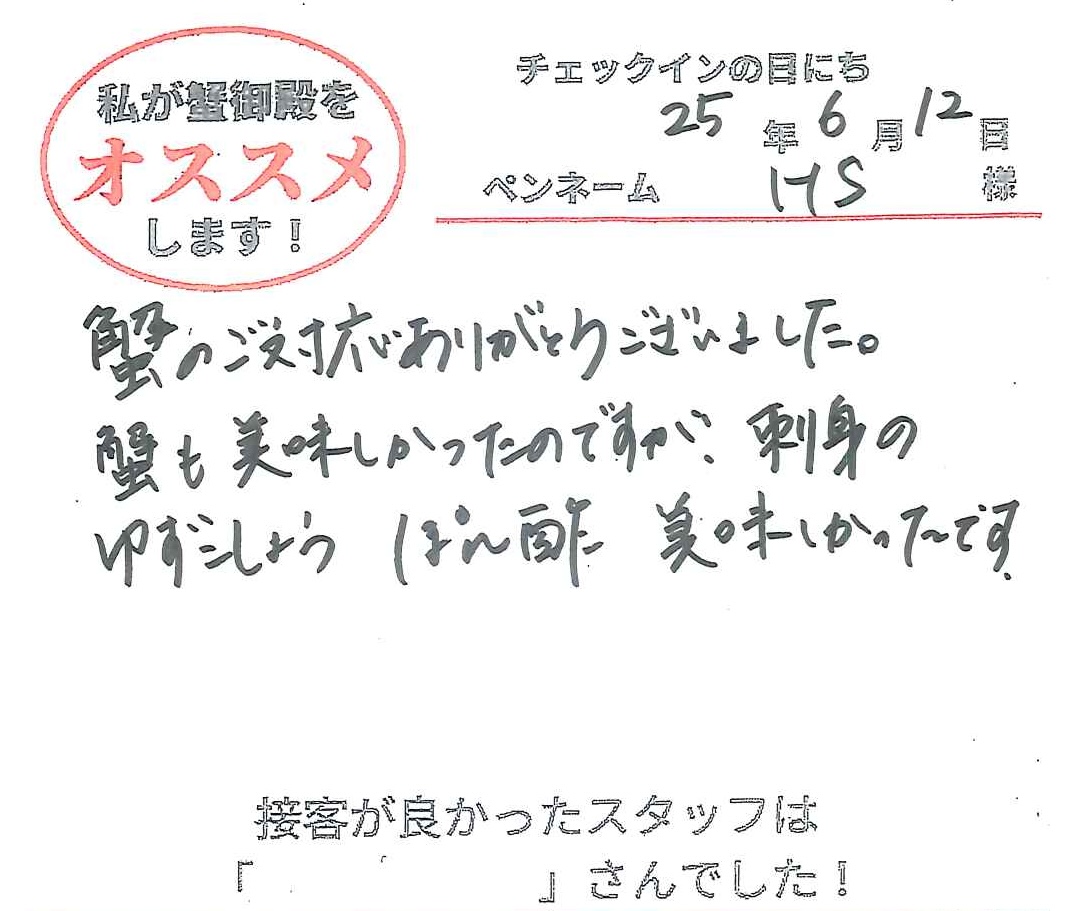 私が蟹御殿を
オススメ
します！
チェックインの日にち
25年6月12日
ペンネーム HS 様
蟹のご対応ありがとうございました。
蟹も美味しかったのですが、刺身の
ゆずこしょう ぽん酢 美味しかったです.
接客が良かったスタッフは
「 」さんでした！